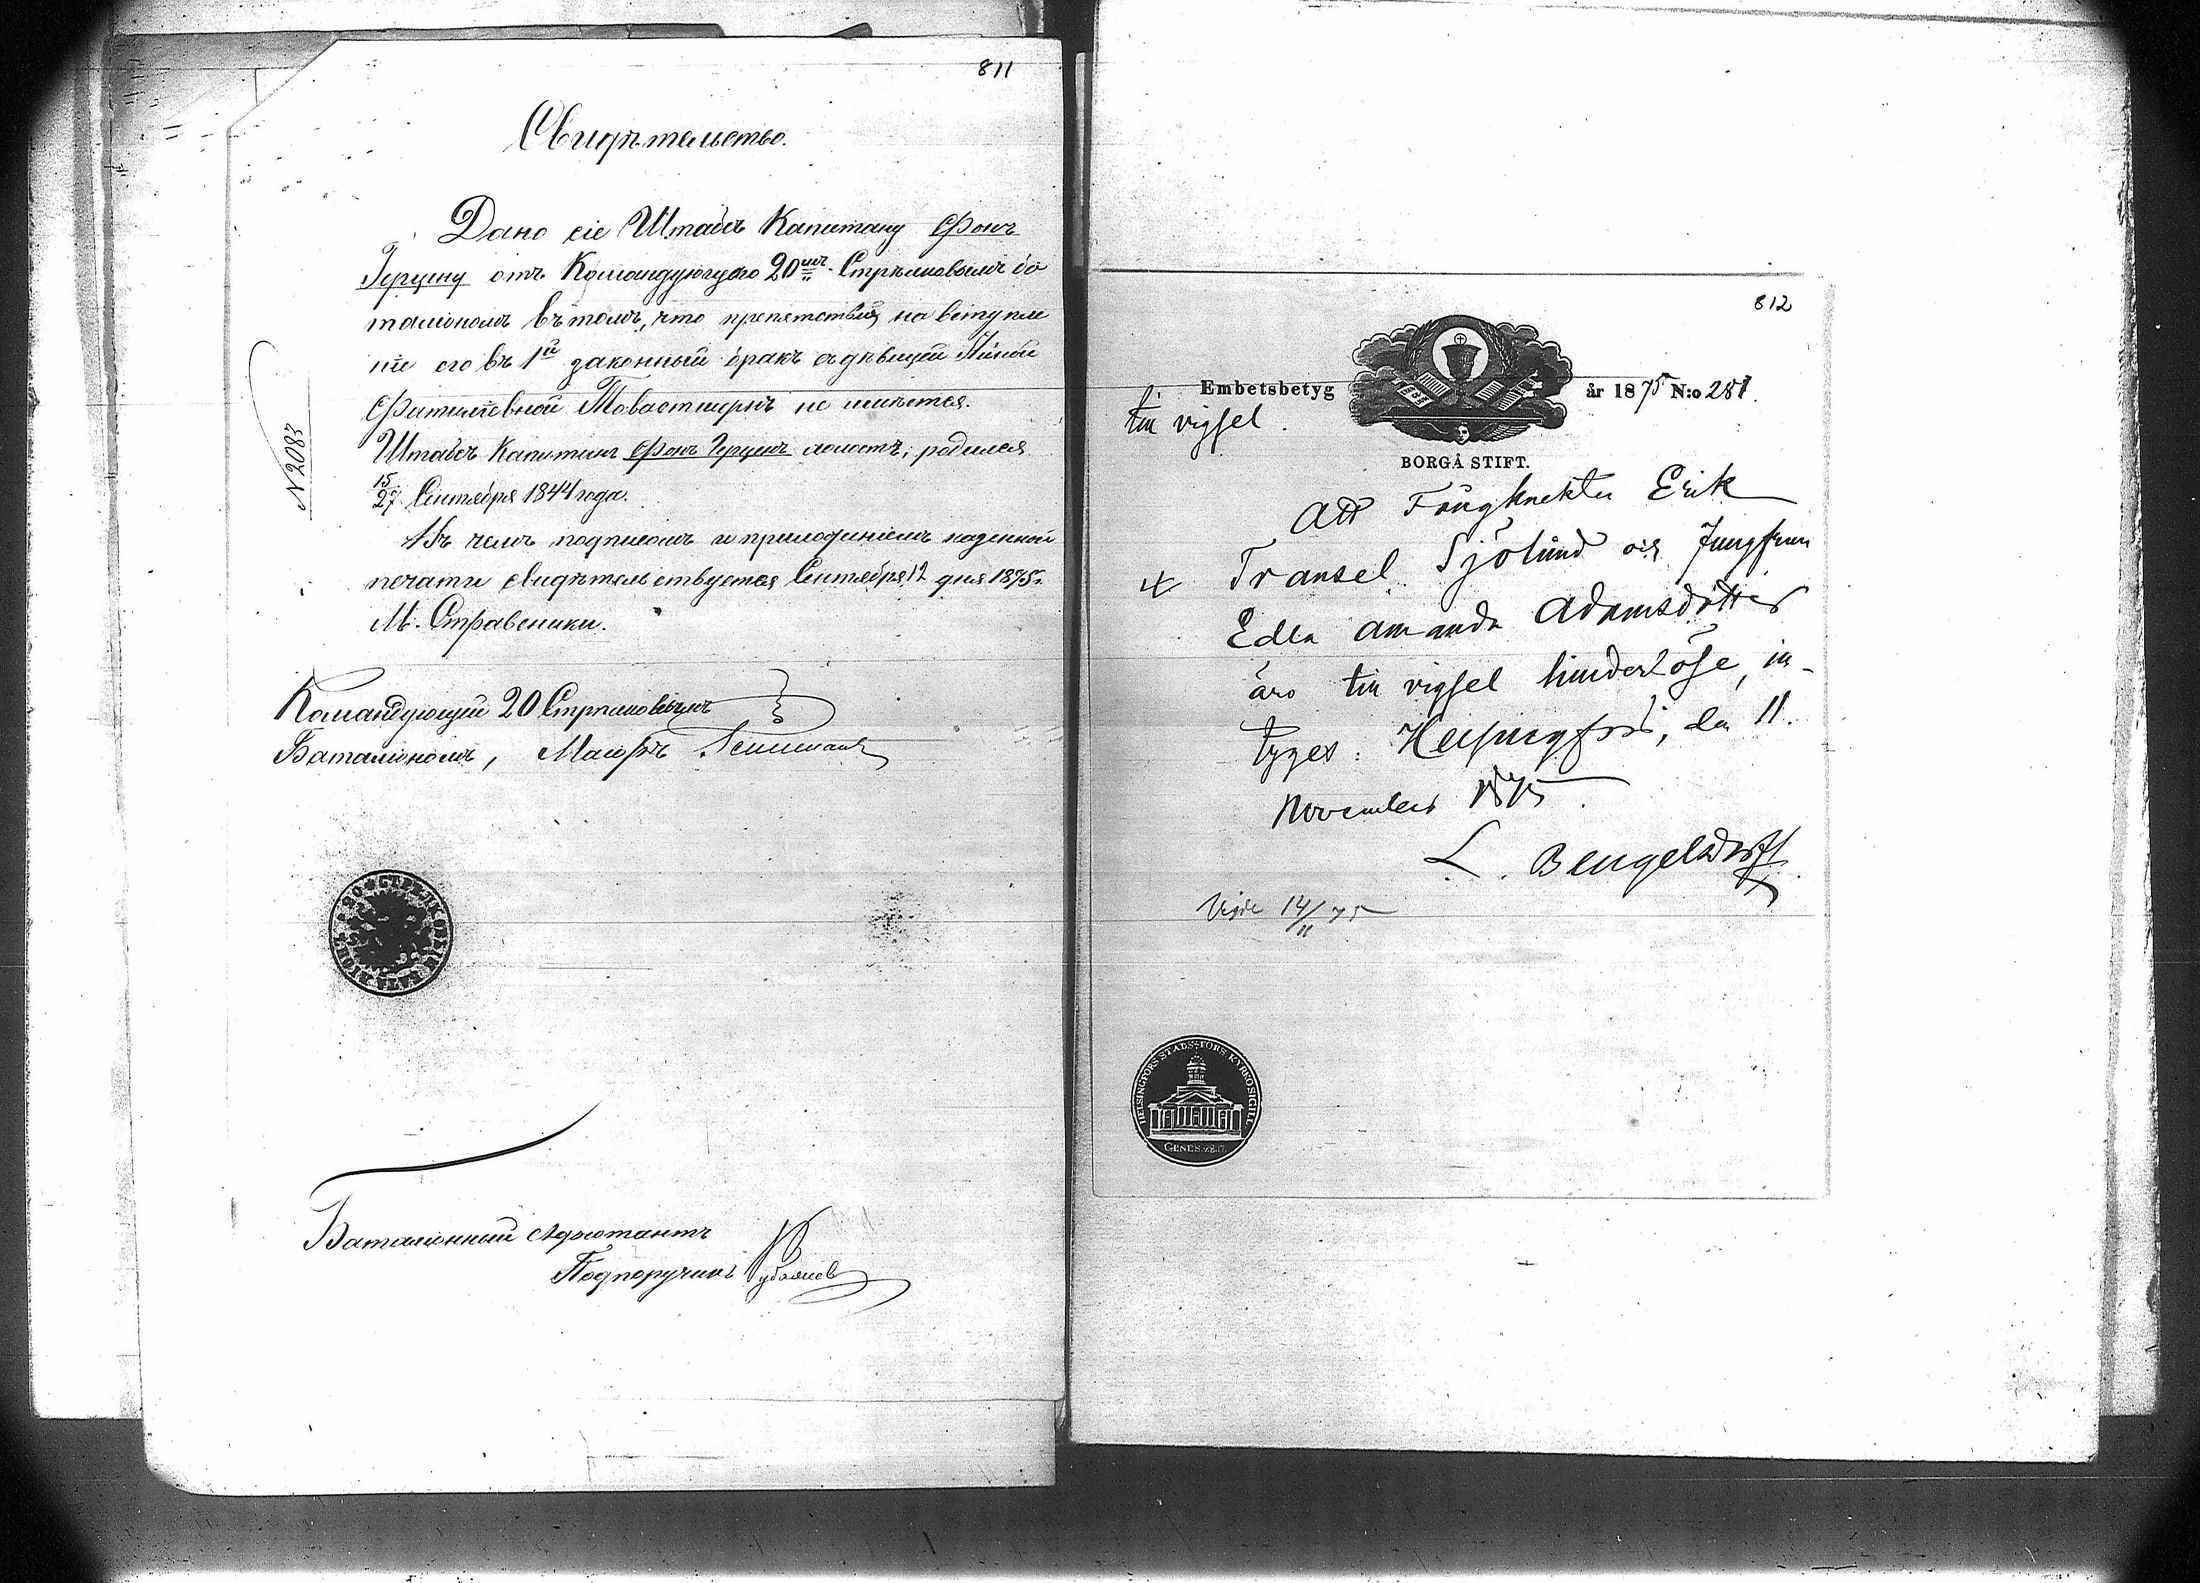 811
Свидѣтельство.
Дано сіе Штабсъ Капитану Фонъ
Герцену отъ Командующаго 20мъ Стрѣлковымъ ба
таліономъ въ томъ, что препятствія на вступле
ніе его въ 1й законный бракъ съ дѣвицей
Тавастшернъ не имѣется.
Штабсъ Капитанъ Фонъ Герценъ холостъ, родился
15/27 Сентября 1844 года.
Въ чемъ подписомъ и приложеніемъ казенной
печати свидѣтельствуется Сентября 12 дня 1875 г.
М.
N 2083
Командующій 20 Стрѣлковымъ
Баталіономъ, Маіоръ
Баталіонный Адъютантъ
Подпоручикъ
812
Embetsbetyg år 1875 N:o 281.
till vigsel.
BORGÅ STIFT.
Att Fångknekten Erik
Transel Sjölund och Jungfrun
Edla Amanda Adamsdotter
äro till vigsel hinderlöse, in-
tyges: Helsingfors, den 11.
November 1875.
L. Bengelsdorff
Vigde 14/11 75
HELSINGFORS STADS-FÖRS. KYRKO SIGILL
GENES. 28.17.